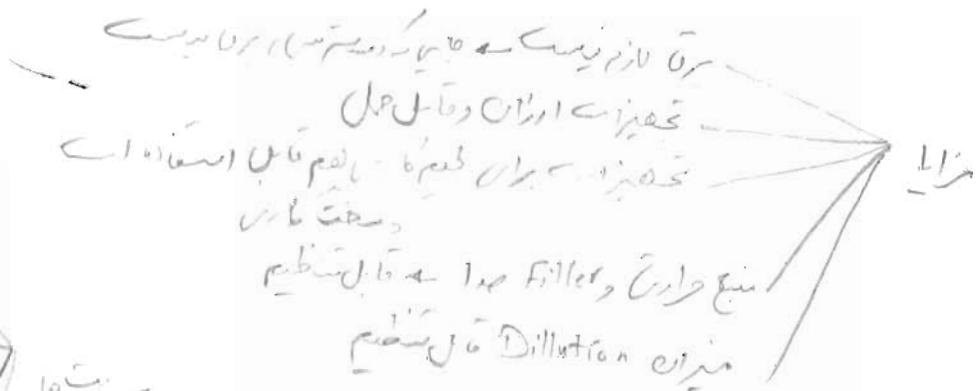 مزایا
برق لازم نیست ← جایی که دسترسی به برق نیست
تجهیزات ارزان و قابل حمل
تجهیزات برای لحیم‌کاری هم قابل استفاده است
و سخت کاری
منبع حرارتی و Filler جدا ← قابل تنظیم
میزان Dillution قابل تنظیم